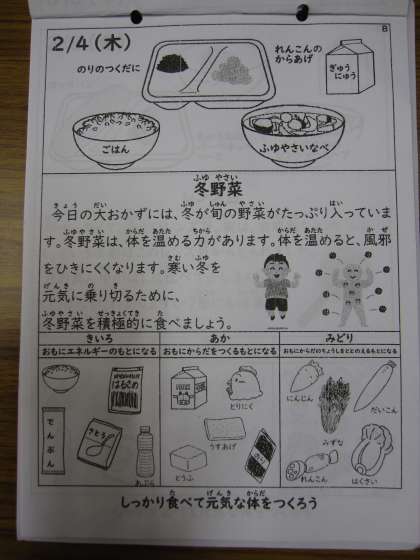 B
2/4(木)
のりのつくだに
れんこんの
からあげ
ぎゅう
にゅう
ごはん
ふゆやさいなべ
冬野菜
今日の大おかずには、冬が旬の野菜がたっぷり入っていま
す。冬野菜は、体を温める力があります。体を温めると、風邪
をひきにくくなります。寒い冬を
元気に乗り切るために、
冬野菜を積極的に食べましょう。
きいろ
あか
みどり
おもにエネルギーのもとになる
おもにからだをつくるもとになる
おもにからだのちょうしをととのえるもとになる
はるさめ
でんぷん
さとう
あぶら
とりにく
うすあげ
とうふ
のり
にんじん
だいこん
みずな
れんこん
はくさい
しっかり食べて元気な体をつくろう